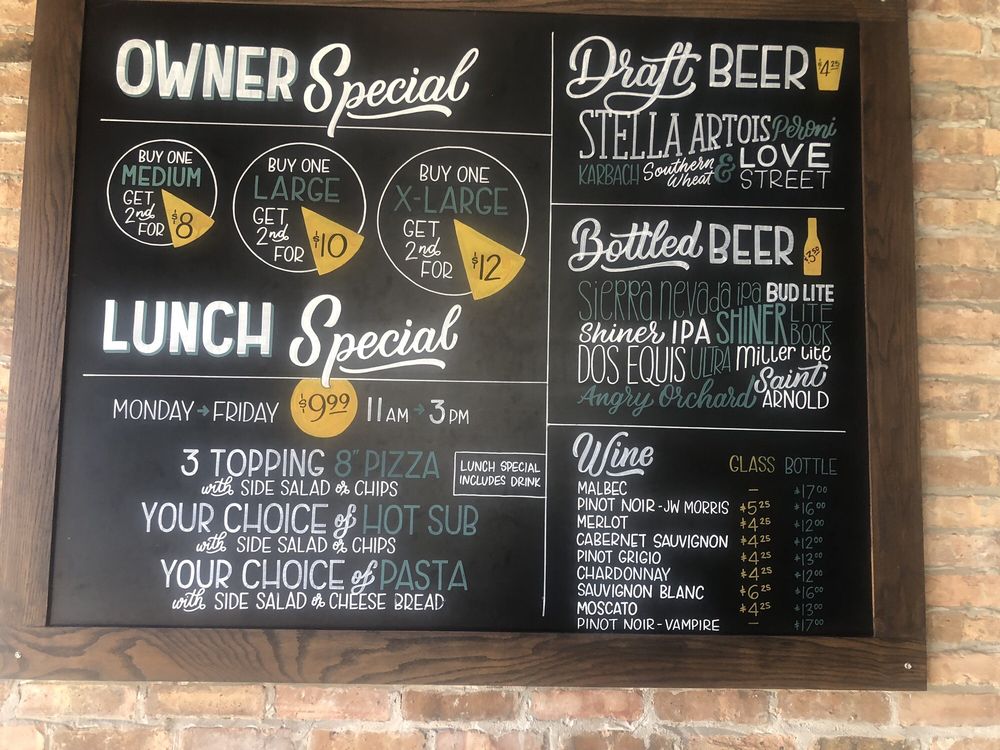 OWNER Special
BUY ONE
MEDIUM
GET
2nd
FOR
$8
BUY ONE
LARGE
GET
2nd
FOR
$10
BUY ONE
X-LARGE
GET
2nd
FOR
$12
LUNCH Special
MONDAY → FRIDAY $9.99 11 AM → 3 PM
3 TOPPING 8" PIZZA
with SIDE SALAD or CHIPS
LUNCH SPECIAL
INCLUDES DRINK
YOUR CHOICE of HOT SUB
with SIDE SALAD or CHIPS
YOUR CHOICE of PASTA
with SIDE SALAD or CHEESE BREAD
Draft BEER $4.25
STELLA ARTOIS Peroni
KARBACH Southern Wheat & LOVE STREET
Bottled BEER $3.50
Sierra Nevada IPA BUD LITE
Shiner IPA SHINER LITE BOCK
DOS EQUIS ULTRA Miller Lite
Angry Orchard Saint ARNOLD
Wine GLASS BOTTLE
MALBEC — $17.00
PINOT NOIR - JW MORRIS $5.25 $16.00
MERLOT $4.25 $12.00
CABERNET SAUVIGNON $4.25 $12.00
PINOT GRIGIO $4.25 $13.00
CHARDONNAY $4.25 $12.00
SAUVIGNON BLANC $6.25 $16.00
MOSCATO $4.25 $13.00
PINOT NOIR - VAMPIRE — $17.00